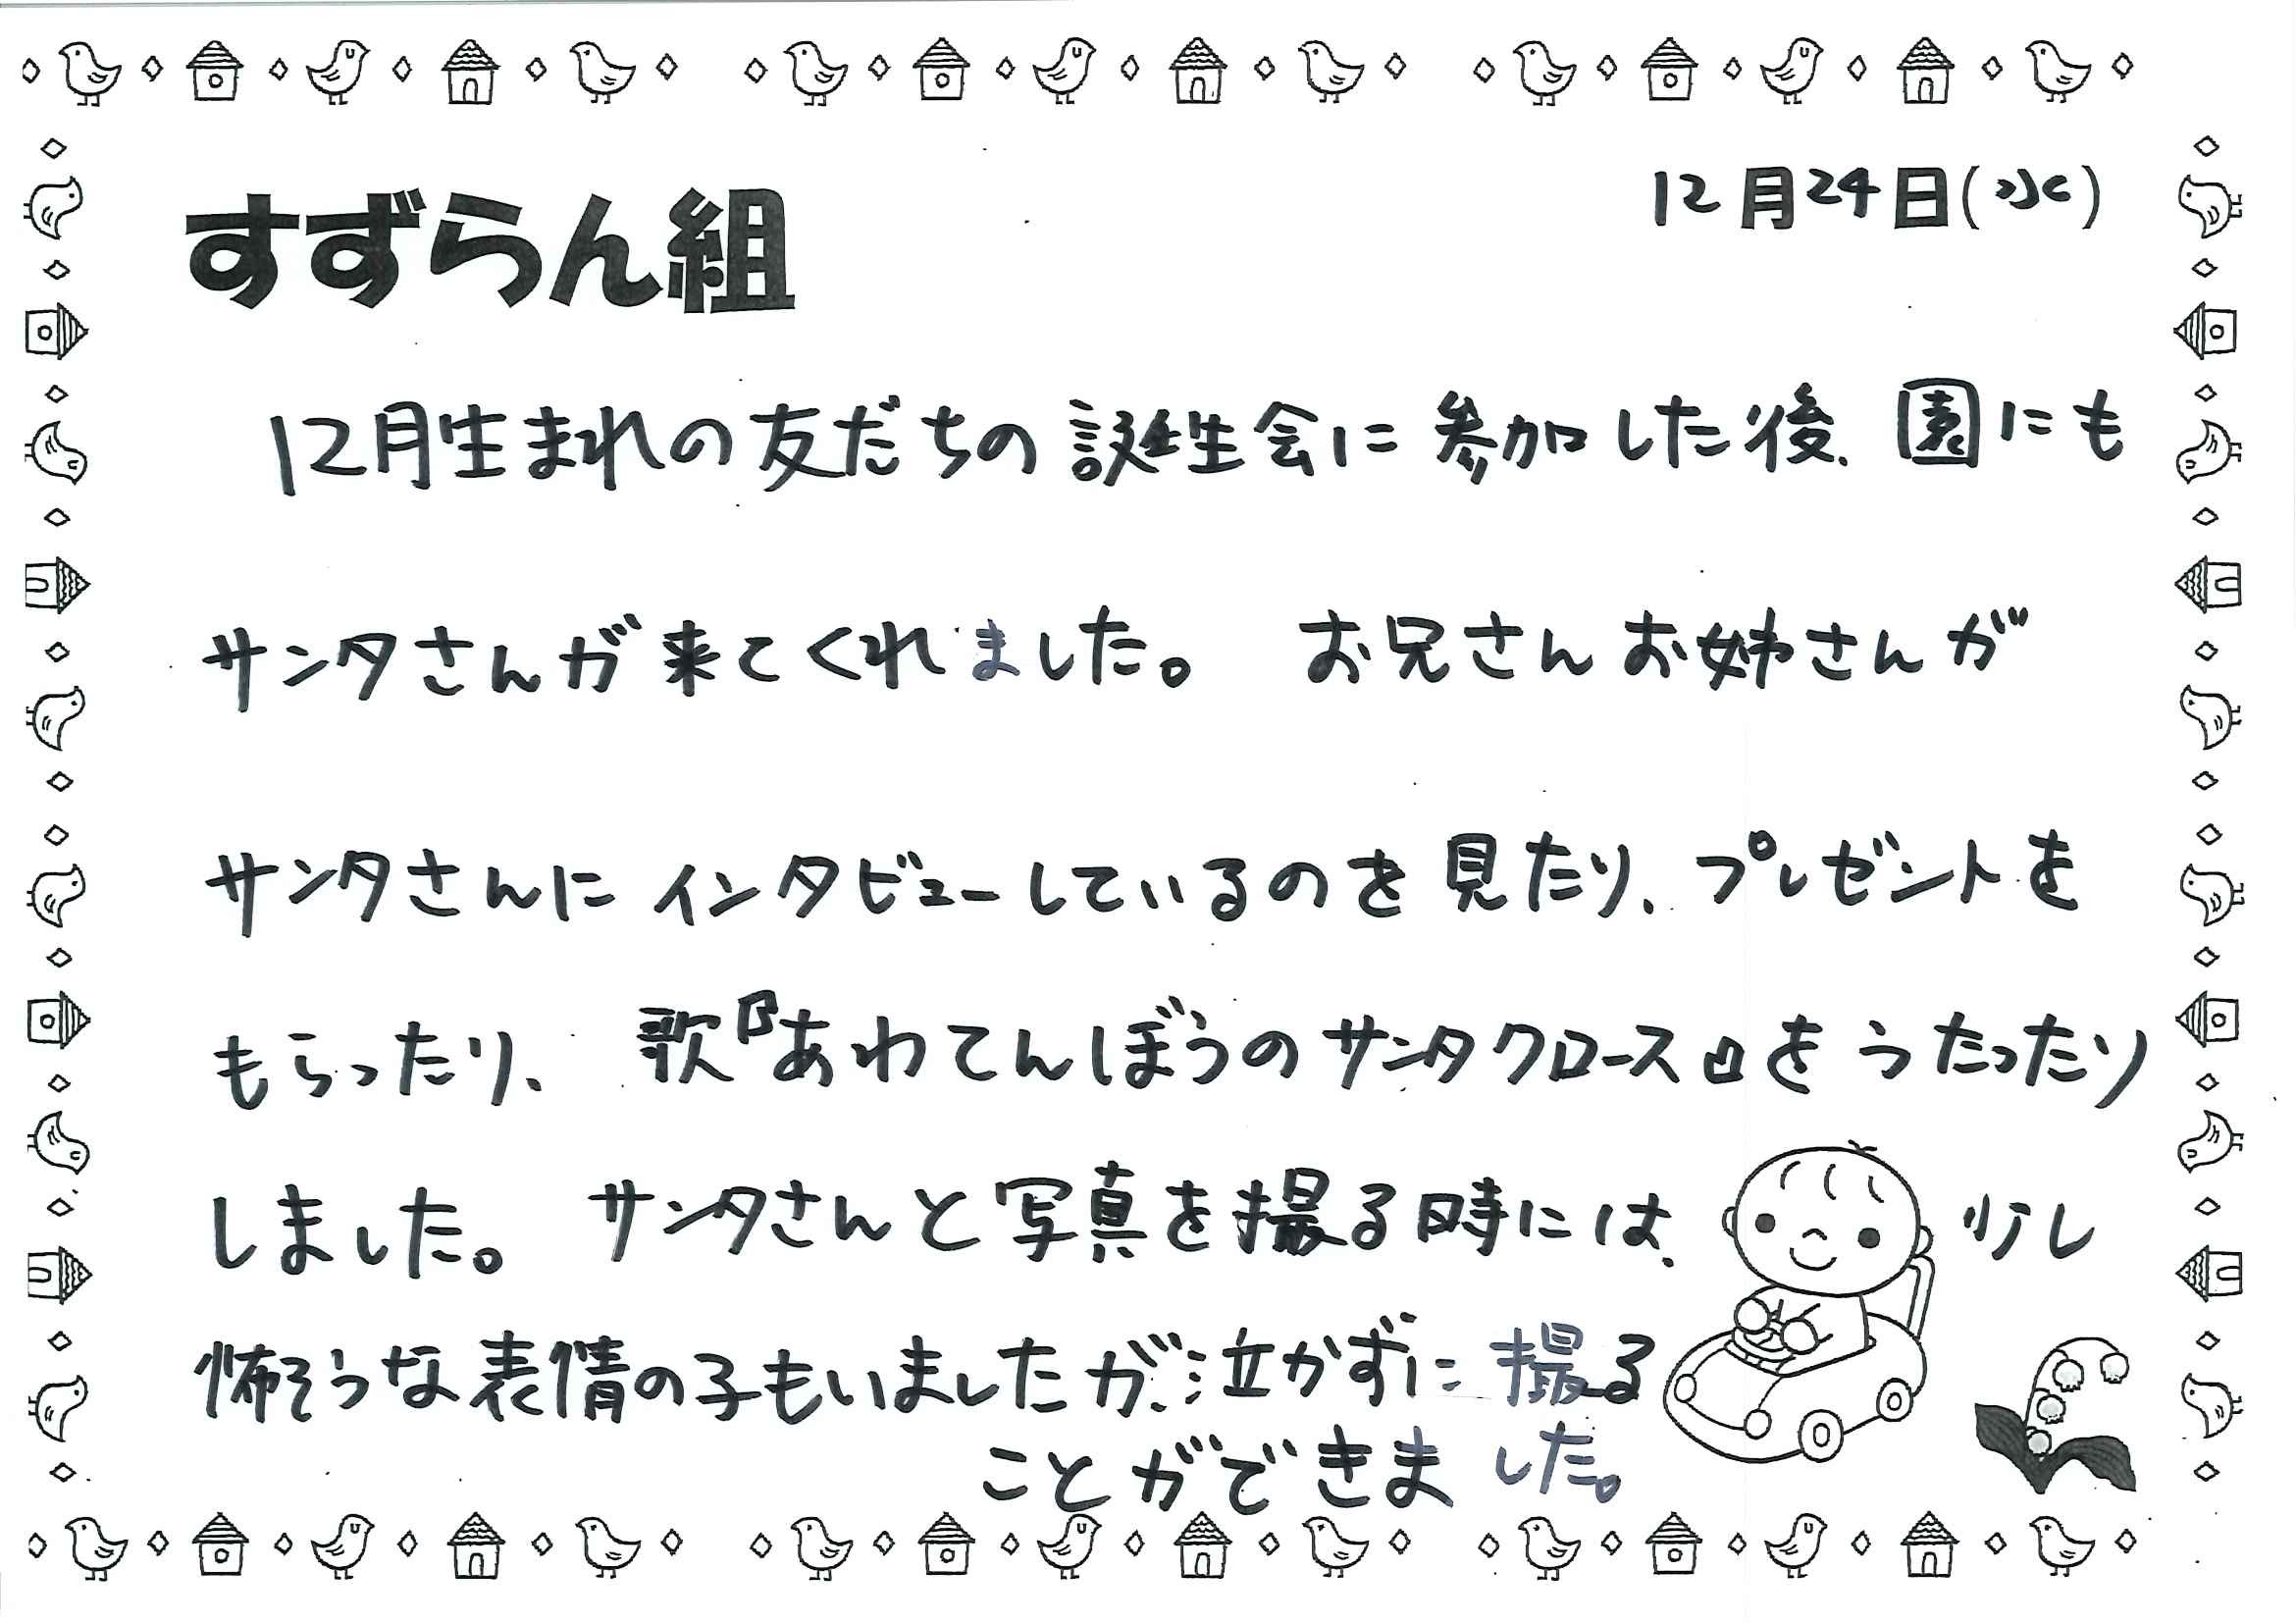 12月24日(水)
すずらん組
12月生まれの友だちの誕生会に参加した後、園にも
サンタさんが来てくれました。 お兄さんお姉さんが
サンタさんにインタビューしているのを見たり、プレゼントを
もらったり、 歌『あわてんぼうのサンタクロース』をうたったり
しました。 サンタさんと写真を撮る時には、少し
怖そうな表情の子もいましたが、泣かずに撮る
ことができました。